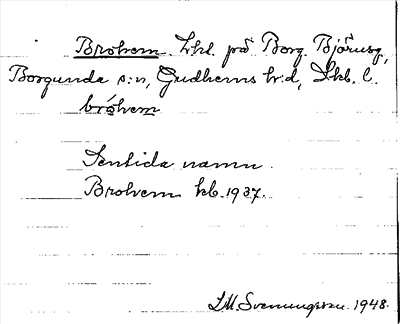 Brohem. Lht. på Borg. Björnsg,
Borgunda s:n, Gudhems h:d, Skb. l.
bróhem
Sentida namn.
Brohem kb. 1937.
S.M. Svenungsson. 1948.